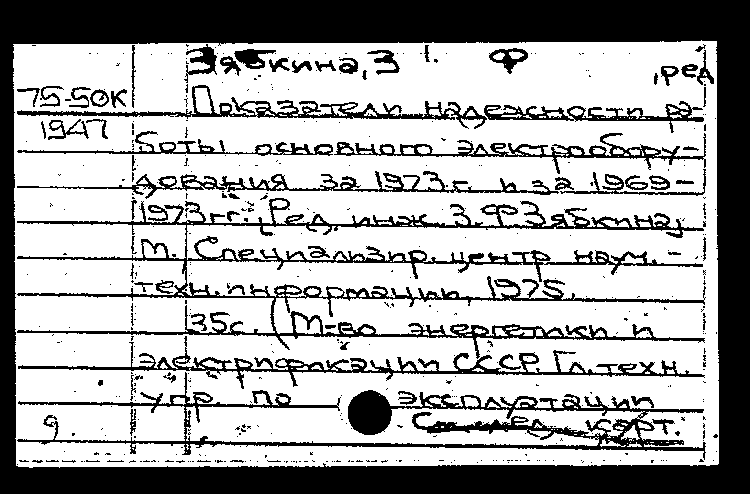 Зябкина, З. Ф
, ред
75-50К
1947
Показатели надежности ра-
боты основного электрообору-
дования за 1973 г. и за 1969-
1973 гг. [Ред. инж. З.Ф Зябкина]
М. Специализир. центр науч.-
техн. информации, 1975.
35с. (М-во энергетики и
электрификации СССР. Гл. техн.
упр. по эксплуатации
См. след. карт.
9.